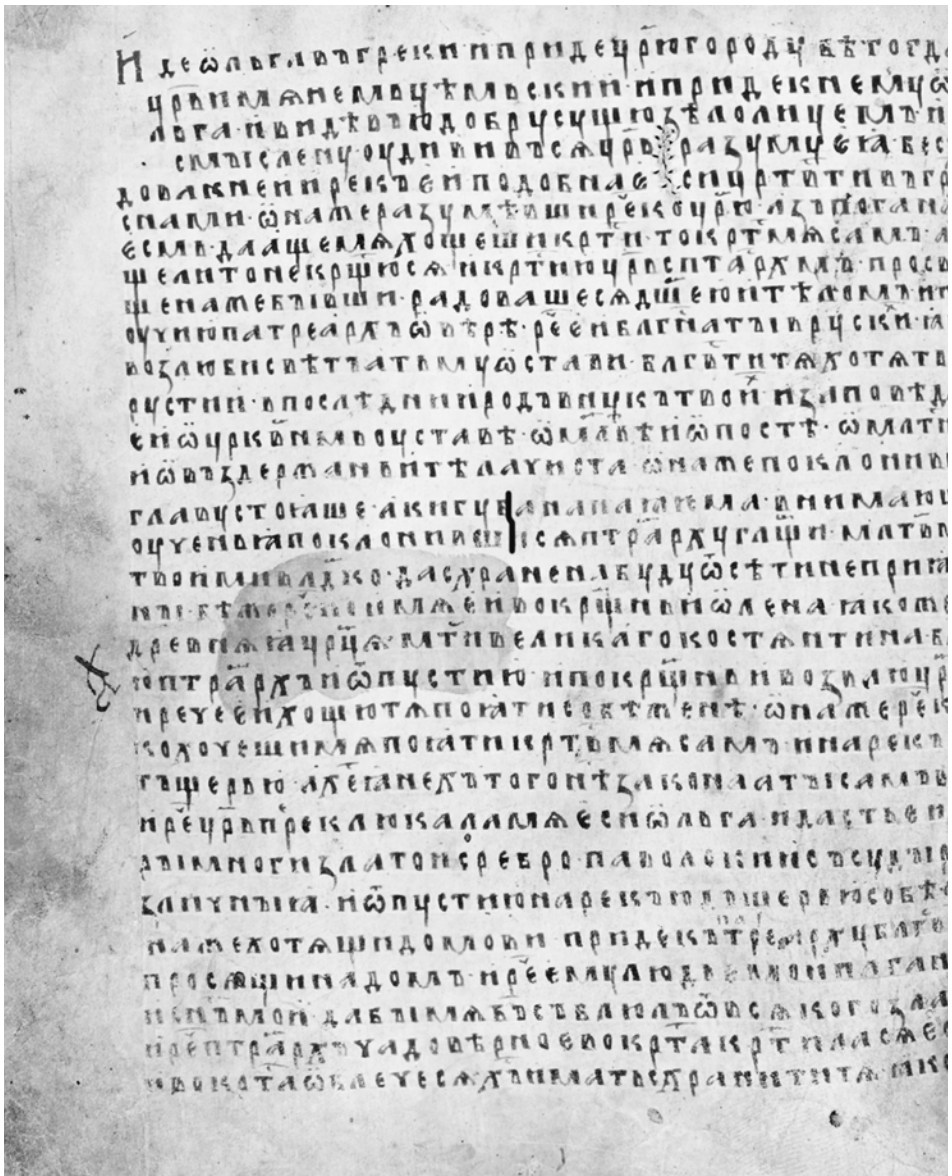 Иде ѡльга въ греки и приде црюгороду бѣ тогда
црь имѧнемь цѣмьскии · и приде к нему ѡ
льга · и видѣвъ ю добру сущю зѣло лицемъ · и
смыслену · оудививъсѧ црь разуму еꙗ · бес
довa к неи и рекъ еи подобна еси црт҃вти въ гр
с нами · ѡна же разумѣвши реч҃ ко црю · азъ погана
есмь · да аще мѧ хощеши крт҃ти · то крт҃ мѧ самъ · а
ще ли то не кр҃щюсѧ · и крт҃и ю црь с птарх҃мъ · просвѣ
щена же бывши · радовашесѧ дш҃ею и тѣломъ · и п
оучи ю патреархъ ѡ вѣрѣ · реч҃ еи блг҃на ты в руски
возлюби свѣтъ а тьму ѡстави · блг҃вти тѧ хотѧть
рустии · в послѣднии родъ внукъ твоии · и заповѣд
еи ѡ црк҃внмь оуставѣ · ѡ мл҃твѣ и ѡ постѣ · ѡ млт҃
и ѡ въздержаньи тѣла чиста · ѡна же поклонивъ
главу стоꙗше · аки губа напаꙗема · внимаю
оученьꙗ поклонившисѧ птр҃арху гл҃щи · мл҃тв
твоими влд҃ко · да схранена буду ѿ сѣти непри
ны · бѣ же реч҃но имѧ еи во крщ҃ньи ѡлена · ꙗкоже
древнѧꙗ црц҃ѧ · мт҃и великаго костѧнтина · б
ю птр҃архъ и ѿпусти ю · и по крщ҃ньи возва ю цр҃
и рече еи хощю тѧ поꙗти собѣ женѣ · ѡна же реч҃ к
ко хочеши мѧ поꙗти крт҃въ мѧ самъ · и нарекъ
тъщерью · а хеꙗнехъ того нѣ закона а ты самъ в
и реч҃ црь · переклюкала мѧ еси ѡльга · и дасть еи
ры многи злато и сребро · паволоки и съсуды
зличныꙗ · и ѿпусти ю нарекъ ю дъщерью собѣ
на же хотѧщи домови · приде къ патреарху блг҃
просѧщи на домъ · и реч҃ ему людье мои пагани
и сн҃ъ мои · дабы мѧ б҃ъ съблюлъ ѿ всѧкого зла
и реч҃ птр҃архъ чадо вѣрное · во крт҃а крт҃иласѧ е
и во хс҃та ѡблечесѧ · х҃ъ имать схранити тѧ · ꙗк